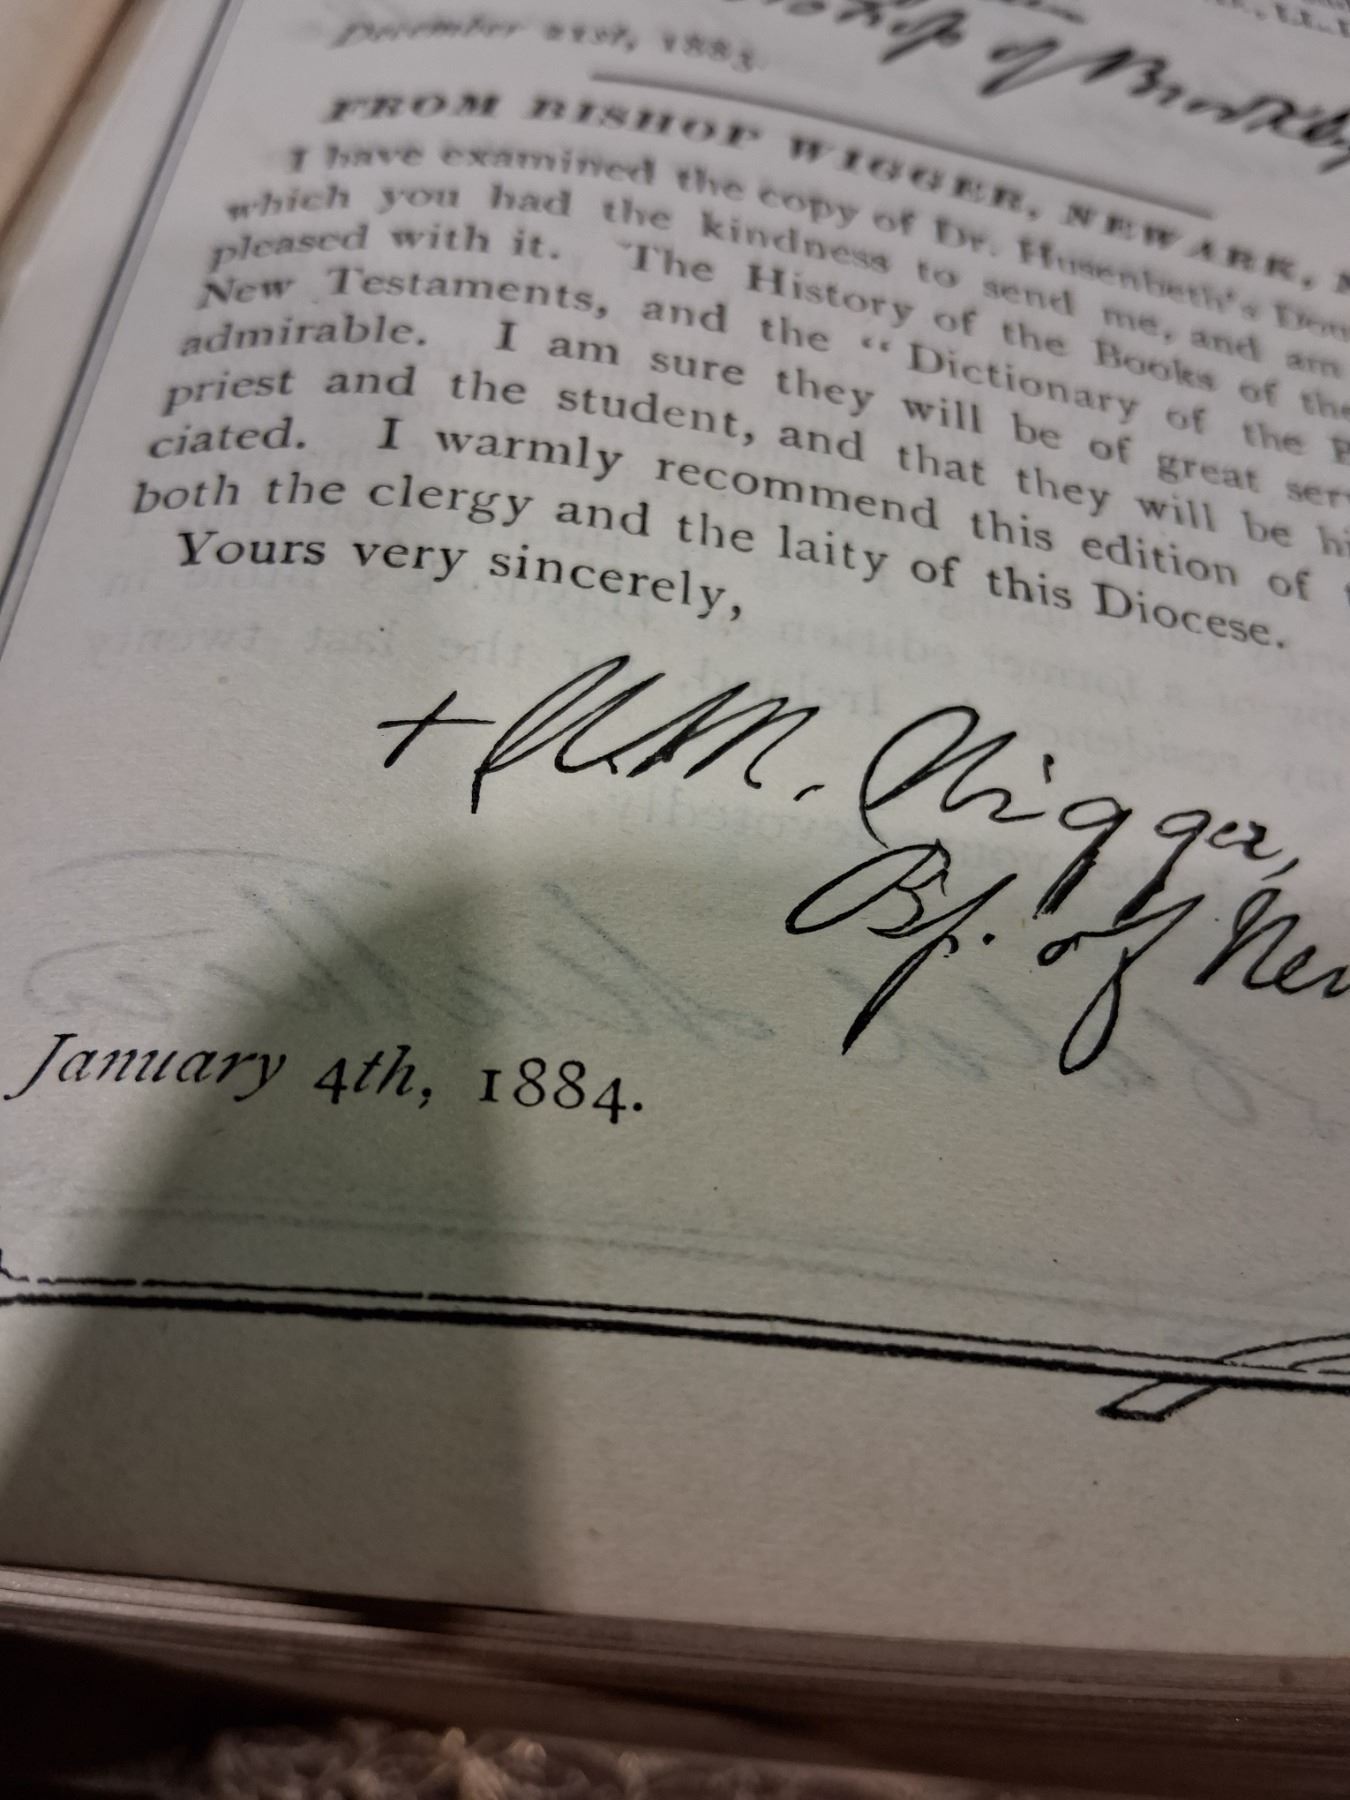 of Brooklyn
December 21st, 1883.
FROM BISHOP WIGGER, NEWARK,
I have examined the copy of Dr. Husenbeth's
which you had the kindness to send me, and am
pleased with it. The History of the Books of the
New Testaments, and the "Dictionary of the
admirable. I am sure they will be of great
priest and the student, and that they will be
ciated. I warmly recommend this edition of
both the clergy and the laity of this Diocese.
Yours very sincerely,
+ W. M. Wigger,
Bp. of New
January 4th, 1884.